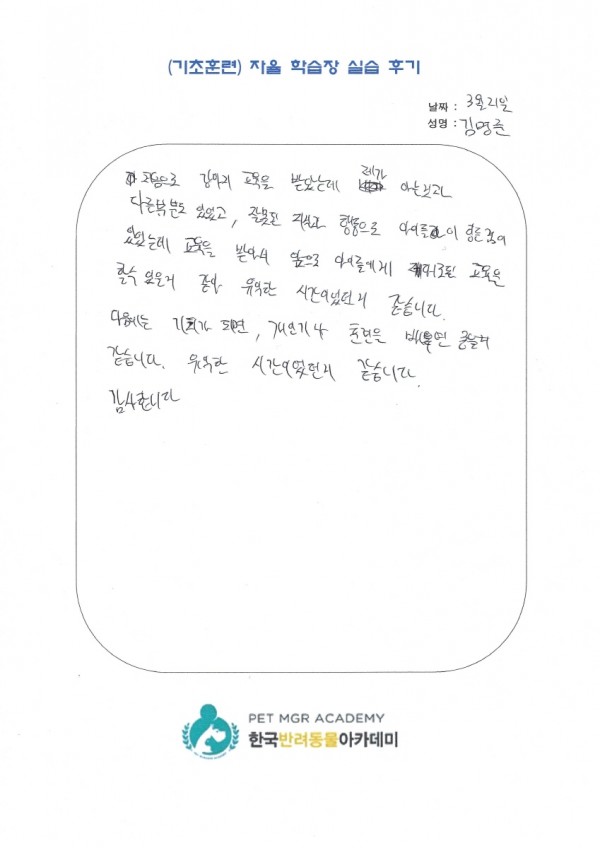 (기초훈련) 자율 학습장 실습 후기
날짜 : 3월 21일
성명 : 김명준
교육을 받았는데 제가 아는것과
다른부분도 있었고, 잘못된 지식과 행동으로 아이들이
있었는데 교육을 받아서 앞으로 아이들에게 교육을
할수 있을거 유익한 시간이었던거 같습니다.
다음에는 기회가 되면, 개인기나 훈련을 배우면 좋을거
같습니다. 유익한 시간이었던거 같습니다.
감사합니다
PET MGR ACADEMY
한국반려동물아카데미